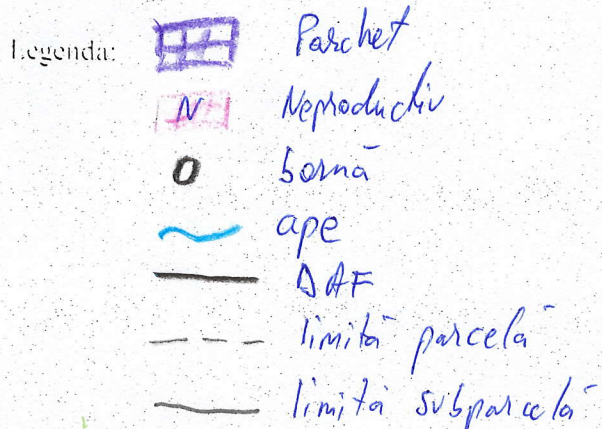 Legenda: Parchet
N Neproductiv
bornă
ape
DAF
limită parcelă
limită subparcelă